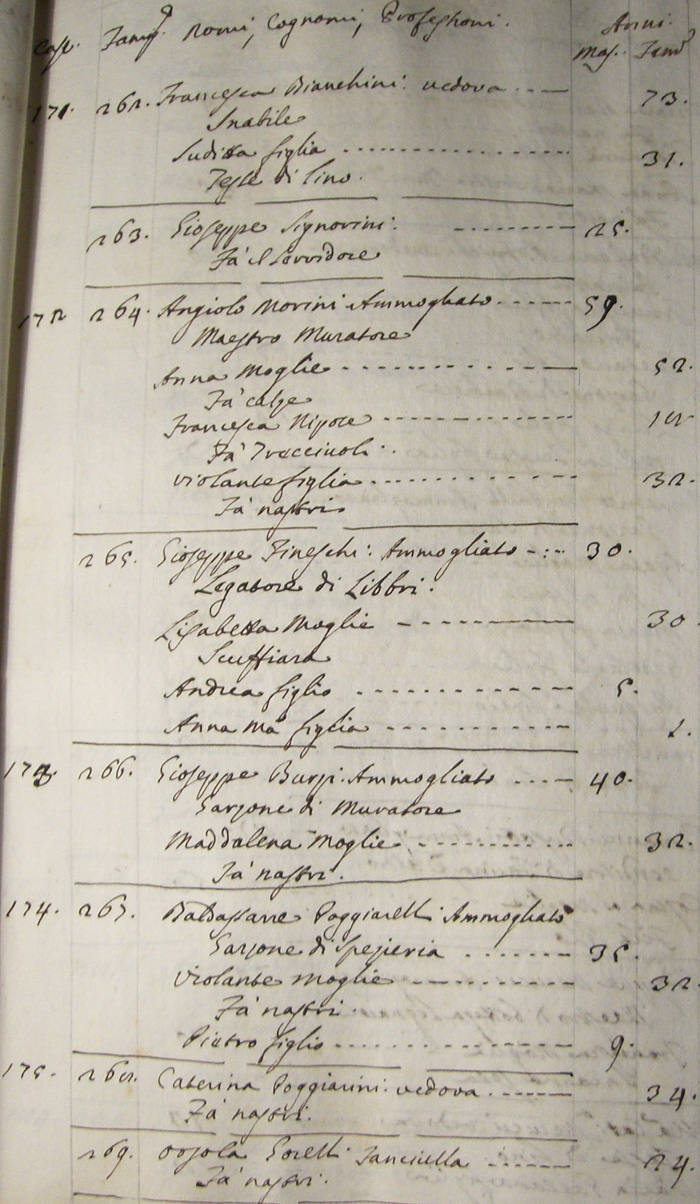 Case. Famig. Nomi, Cognomi, Professioni. Anni.
Mas. Fem.
171. 262. Francesca Bianchini: vedova 73.
Inabile
Juditta figlia 31.
Tesse di lino.
263. Gioseppe Signorini: 25.
Fà il Servidore
172 264. Angiolo Morini Ammogliato 59.
Maestro Muratore
Anna Moglie 52.
Fà calze
Francesca Nipote
Fà Trecciuoli.
Violante figlia 32.
Fà nastri
265. Gioseppe Fineschi: Ammogliato 30.
Legatore di Libbri.
Lisabetta Moglie 30.
Scuffiara
Andrea figlio 5.
Anna Mа figlia 1.
173. 266. Gioseppe Burpi Ammogliato 40.
Garzone di Muratore
Maddalena Moglie 32.
Fà nastri.
174. 267. Baldassarre Poggiarelli Ammogliato
Garzone di Spezieria 35.
Violante Moglie 32.
Fà nastri.
Pietro figlio 9.
175. 268. Caterina Poggiarini: vedova 34.
Fà nastri.
269. Orsola Gorelli Fanciulla 24.
Fà nastri.